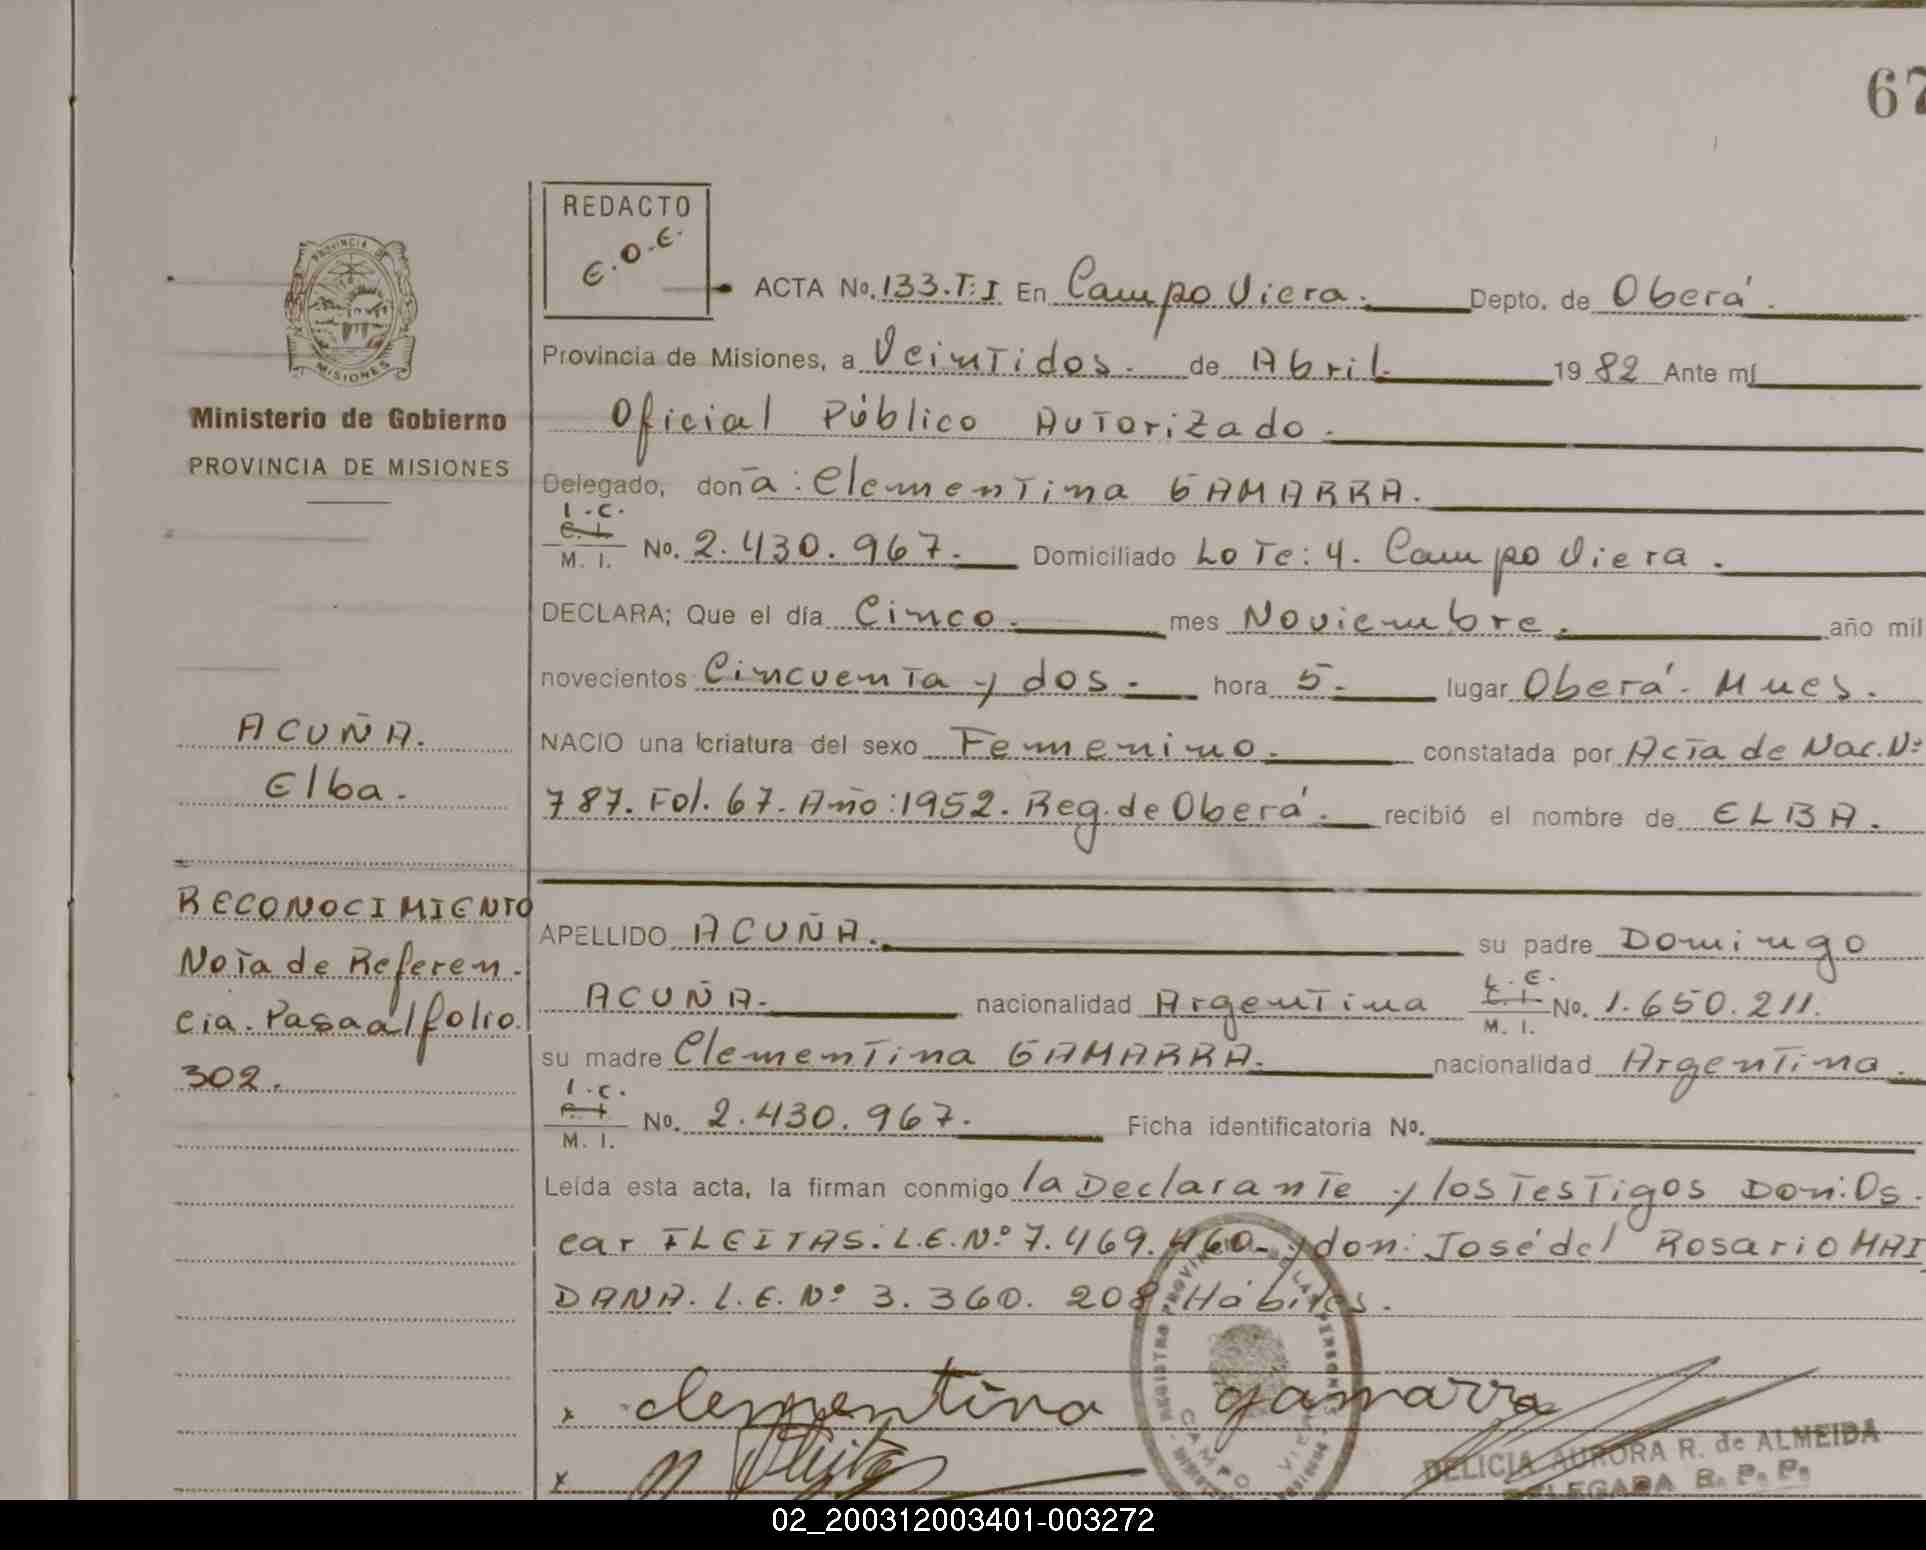 67
REDACTO
E.O.E.
PROVINCIA DE
MISIONES
Ministerio de Gobierno
PROVINCIA DE MISIONES
ACTA No. 133.T:I En Campo Viera. Depto. de Oberá.
Provincia de Misiones, a Veintidos. de Abril. 1982 Ante mí
Oficial Público Autorizado.
Delegado, don a: Clementina GAMARRA.
I.C.
C. I.
M. I.
No. 2.430.967. Domiciliado Lote: 4. Campo Viera.
DECLARA; Que el día Cinco. mes Noviembre. año mil
novecientos Cincuenta y dos. hora 5. lugar Oberá. Mnes.
NACIO una criatura del sexo Femenino. constatada por Acta de Nac. Nº
787. Fol. 67. Año: 1952. Reg. de Oberá. recibió el nombre de ELBA.
ACUÑA.
Elba.
RECONOCIMIENTO
Nota de Referen-
cia. Pasa al folio
302.
APELLIDO ACUÑA. su padre Domingo
ACUÑA. nacionalidad Argentina L.E. C. I. M. I. No. 1.650.211.
su madre Clementina GAMARRA. nacionalidad Argentina.
I.C.
C. I.
M. I.
No. 2.430.967. Ficha identificatoria No.
Leída esta acta, la firman conmigo la Declarante y los Testigos Don: Os-
car FLEITAS. L.E. Nº 7.469.460. y don: José del Rosario MAI
DANA. L.E. Nº 3.360.208 Hábiles.
x Clementina gamarra
x
CAMPO VIERA
DELICIA AURORA R. de ALMEIDA
DELEGADA R. P. P.
02_200312003401-003272